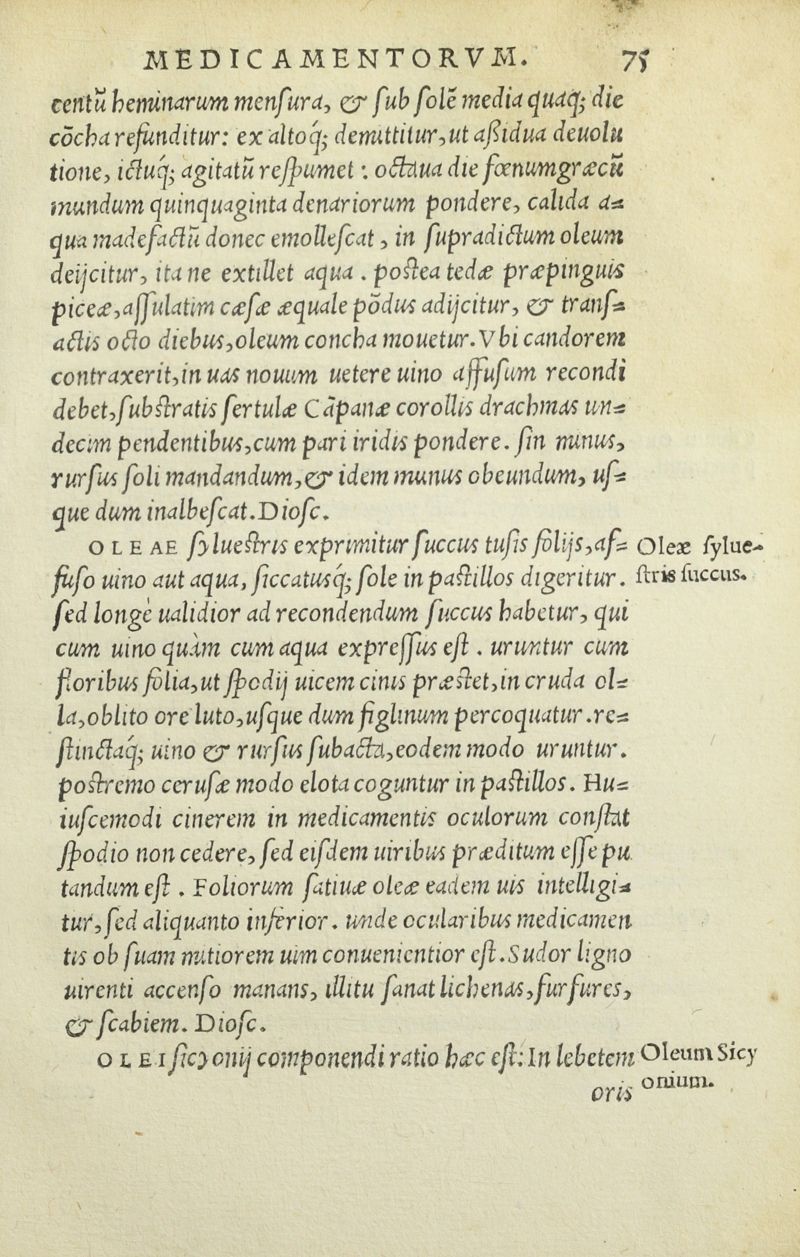 MEDICAMENTORVM. 75
centū heminarum mensura, & sub solē media quaq; die
cōcha refunditur: ex alto q́; demittitur, ut aßidua deuolu
tione, ictuq́; agitatū respumet: octaua die fœnumgræcū
mundum quinquaginta denariorum pondere, calida a=
qua madefactū donec emollescat, in supradictum oleum
deijcitur, ita ne extillet aqua. postea tedæ præpinguis
piceæ, assulatim cæsæ æquale pōdus adijcitur, & trans=
actis octo diebus, oleum concha mouetur. Vbi candorem
contraxerit, in uas nouum uetere uino affusum recondi
debet, substratis sertulæ Cāpanæ corollis drachmas un=
decim pendentibus, cum pari iridis pondere. sin minus,
rursus soli mandandum, & idem munus obeundum, us=
que dum inalbescat. Diosc.
OLEAE syluestris exprimitur succus tusis folijs, af= Oleæ sylue-
fuso uino aut aqua, siccatusq́; sole in pastillos digeritur. stris succus.
sed longè ualidior ad recondendum succus habetur, qui
cum uino quàm cum aqua expressus est. uruntur cum
floribus folia, ut spodij uicem cinis præstet, in cruda ol=
la, oblito ore luto, usque dum figlinum percoquatur. re=
stinctaq́; uino & rursus subacta, eodem modo uruntur.
postremo cerusæ modo elota coguntur in pastillos. Hu=
iuscemodi cinerem in medicamentis oculorum constat
spodio non cedere, sed eisdem uiribus præditum esse pu
tandum est. Foliorum satiuæ oleæ eadem uis intelligi=
tur, sed aliquanto inferior. unde ocularibus medicamen
tis ob suam mitiorem uim conuenientior est. Sudor ligno
uirenti accenso manans, illitu sanat lichenas, furfures,
& scabiem. Diosc.
OLEI sicyonij componendi ratio hæc est: In lebetem Oleum Sicy
oris onium.